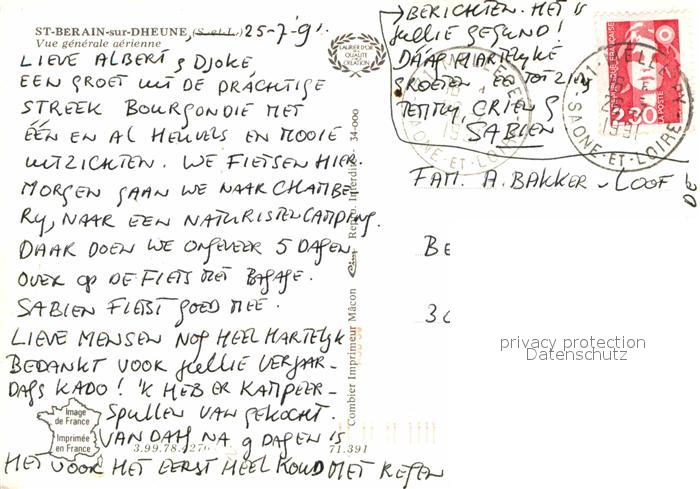 ST-BERAIN-sur-DHEUNE, (S.-et-L.) 25-7-'91.
Vue générale aérienne
LIEVE ALBERT & DJOKE
EEN GROET UIT DE PRÁCHTIGE
STREEK BOURGONDIE MET
ÉÉN EN AL HEUVELS EN MOOIE
UITZICHTEN. WE FIETSEN HIER.
MORGEN GAAN WE NAAR CHAMBE
RY, NAAR EEN NATURISTENCAMPING.
DAAR DOEN WE ONGEVEER 5 DAGEN
OVER OP DE FIETS MET BAGAGE.
SABIEN FIETST GOED MEE.
LIEVE MENSEN NOG HEEL HARTELIJK
BEDANKT VOOR JULLIE VERJAAR-
DAGS KADO! 'K HEB ER KAMPEER-
SPULLEN VAN GEKOCHT.
VANDAAG NA 9 DAGEN IS
HET VOOR HET EERST HEEL KOUD MET REGEN
Image
de France
Imprimée
en France
3.99.78.4276
71.391
LAURIER D'OR
DE LA
QUALITÉ
CRÉATION
Combier Imprimeur Mâcon
Repro. Interdite
34-000
BERICHTEN. HET IS
JULLIE GEGUND!
DÁÁG HARTELIJKE
GROETEN EN TOT ZIENS
TEMMY, CRIEN &
SABIEN
RÉPUBLIQUE FRANÇAISE
2,30
LA POSTE
SAONE-ET-LOIRE
SAONE-ET-LOIRE
FAM. A. BAKKER - LOOF
BE
36
privacy protection
Datenschutz